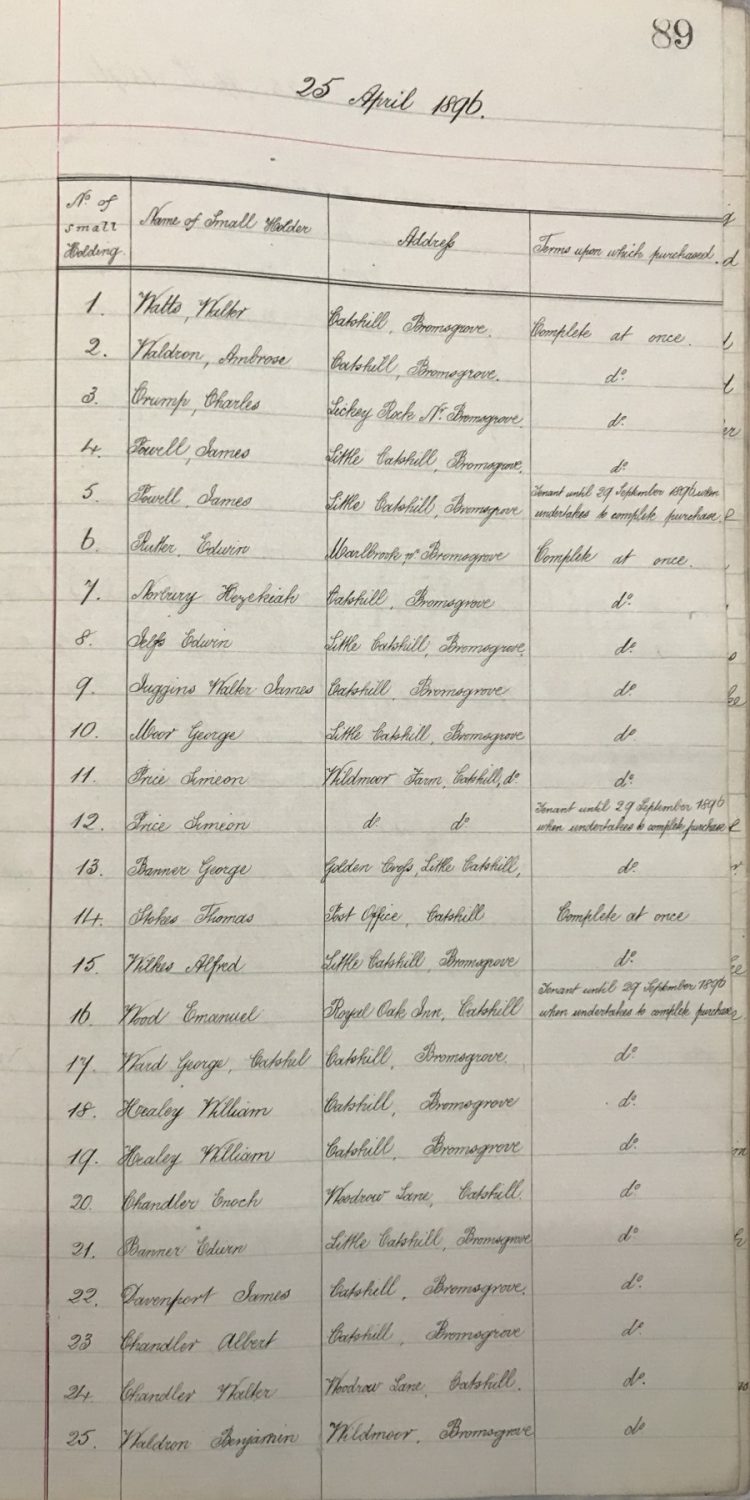 89
25 April 1896.
No. of small Holding. Name of Small Holder Address Terms upon which purchased.
1. Watts, Walter Catshill, Bromsgrove. Complete at once.
2. Waldron, Ambrose Catshill, Bromsgrove. do.
3. Crump, Charles Lickey Rock Nr. Bromsgrove. do.
4. Powell, James Little Catshill, Bromsgrove. do.
5. Powell, James Little Catshill, Bromsgrove Tenant until 29 September 1896 when
undertakes to complete purchase.
6. Rutter, Edwin Marlbrook nr Bromsgrove Complete at once.
7. Norbury Hezekiah Catshill, Bromsgrove do.
8. Selfs Edwin Little Catshill, Bromsgrove. do.
9. Juggins Walter James Catshill, Bromsgrove do.
10. Moor George Little Catshill, Bromsgrove do.
11. Price Simeon Wildmoor Farm, Catshill, do. do.
12. Price Simeon do. do. Tenant until 29 September 1896
when undertakes to complete purchase
13. Banner George Golden Cross, Little Catshill, do.
14. Stokes Thomas Post Office, Catshill Complete at once
15. Wilkes Alfred Little Catshill, Bromsgrove do.
16. Wood Emanuel Royal Oak Inn, Catshill Tenant until 29 September 1896
when undertakes to complete purchase
17. Ward George, Catshel Catshill, Bromsgrove. do.
18. Healey William Catshill, Bromsgrove do.
19. Healey William Catshill, Bromsgrove do.
20. Chandler Enoch Woodrow Lane, Catshill. do.
21. Banner Edwin Little Catshill, Bromsgrove do
22. Davenport James Catshill, Bromsgrove. do.
23 Chandler Albert Catshill, Bromsgrove do.
24. Chandler Walter Woodrow Lane, Catshill. do.
25. Waldron Benjamin Wildmoor, Bromsgrove do